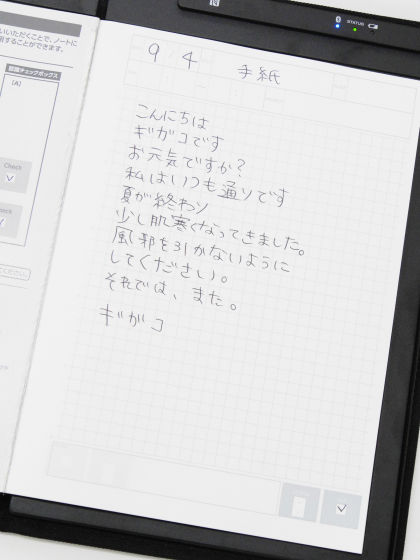 いいただくことで、ノートに
用することができます。
認識チェックボックス
[A]
Check
Check
STATUS
9 4 手紙
こんにちは
ギガコです
お元気ですか?
私はいつも通りです
夏が終わり
少し肌寒くなってきました。
風邪を引かないように
してください。
それでは、また。
ギガコ